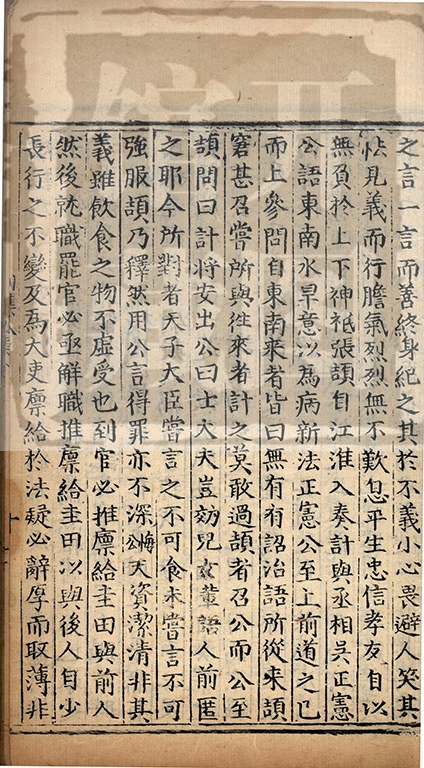 之言一言而善終身紀之其於不義小心畏避人笑其
怯見義而行膽氣烈烈無不歎息平生忠信孝友自以
無負於上下神祗張頡自江淮入奏計與丞相吳正憲
公語東南水旱意以為病新法正憲公至上前道之已
而上參問自東南來者皆曰無有有詔治語所從來頡
窘甚召嘗所與往來者計之莫敢過頡者召公而公至
頡問曰計將安出公曰士大夫豈効兒女輩語人前匿
之耶今所對者天子大臣嘗言之不可食未嘗言不可
強服頡乃釋然用公言得罪亦不深悔公天資潔清非其
義雖飲食之物不虛受也到官必推廩給圭田與前人
然後就職罷官必亟解職推廩給圭田以與後人自少
長行之不變及為大吏廩給於法疑必辭厚而取薄非